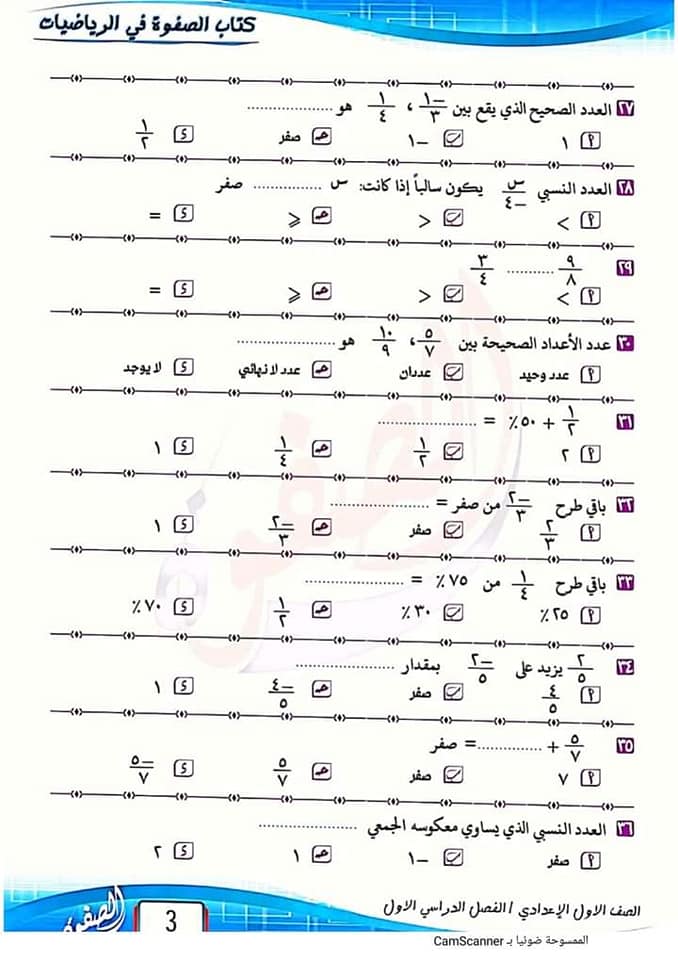 كتاب الصفوة في الرياضيات
٢٧ العدد الصحيح الذي يقع بين -١/٣ ، ١/٤ هو ..................
أ ١ ب -١ ج صفر د ١/٢
٢٨ العدد النسبي س/-٤ يكون سالباً إذا كانت: س .............. صفر
أ > ب < ج ⩾ د =
٢٩ ٩/٨ .......... ٣/٤
أ > ب < ج ⩾ د =
٣٠ عدد الأعداد الصحيحة بين ٥/٧ ، ١٠/٩ هو ....................
أ عدد وحيد ب عددان ج عدد لا نهائي د لا يوجد
٣١ ١/٢ + ٥٠٪ = ....................
أ ٢ ب ١/٢ ج ١/٤ د ١
٣٢ باقي طرح -٢/٣ من صفر = ....................
أ ٢/٣ ب صفر ج -٢/٣ د ١
٣٣ باقي طرح ١/٤ من ٧٥٪ = ....................
أ ٢٥٪ ب ٣٠٪ ج ١/٢ د ٧٠٪
٣٤ ٢/٥ يزيد على -٢/٥ بمقدار ....................
أ ٤/٥ ب صفر ج -٤/٥ د ١
٣٥ ٥/٧ + ..............= صفر
أ ٧ ب صفر ج ٥/٧ د -٥/٧
٣٦ العدد النسبي الذي يساوي معكوسه الجمعي ....................
أ صفر ب -١ ج ١ د ٢
الصف الاول الإعدادي / الفصل الدراسي الاول
3
الصفوة
الممسوحة ضوئيا بـ CamScanner